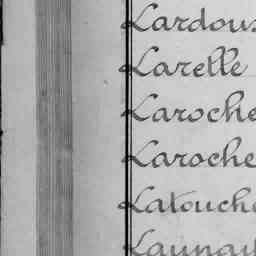 Lardous
Larelle
Laroche
Laroche
Latouche
Launay